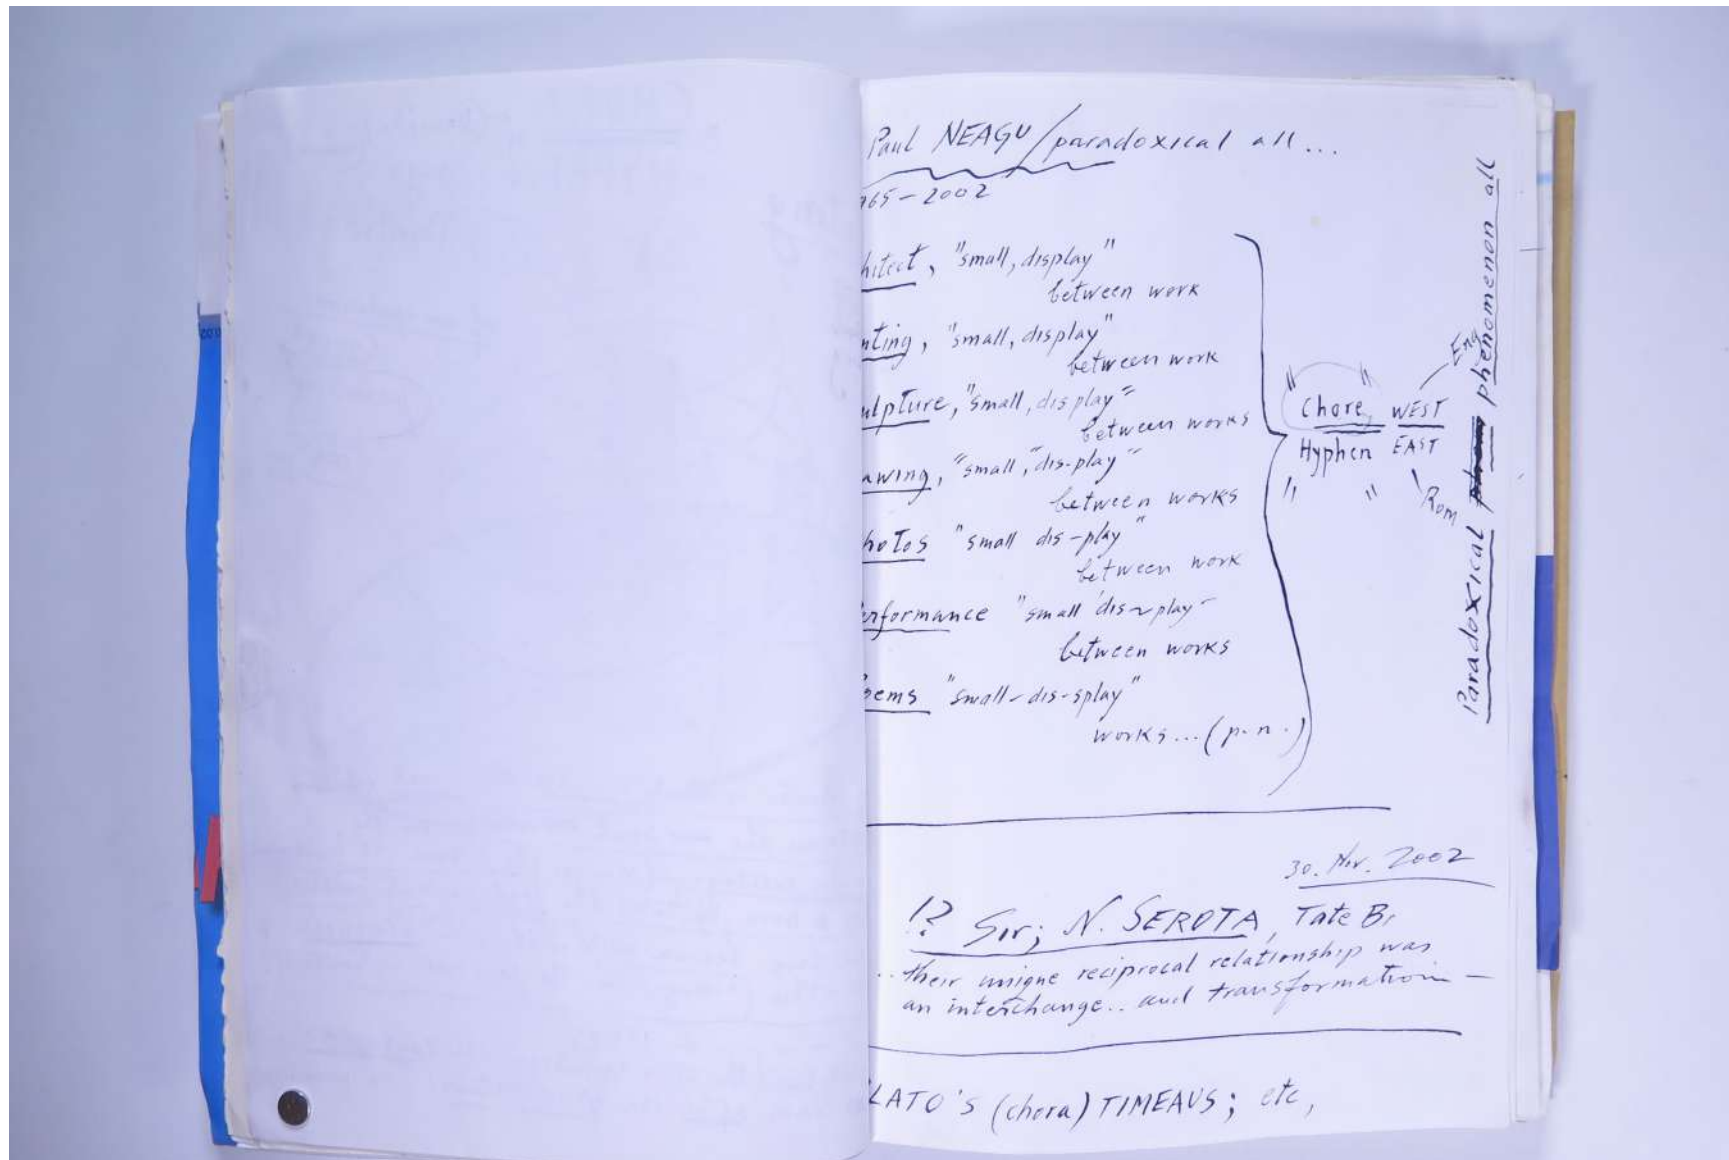 Paul NEAGU/paradoxical all...
965-2002
hitect, "small, display"
between work
nting, "small, display"
between work
ulpture, "small, display"
between works
awing, "small, dis-play"
between works
hotos "small dis-play"
between work
erformance "small dis-play"
between works
oems "small-dis-splay"
works...(p.n.)
"Chore" WEST Eng
"Hyphen" EAST Rom
Paradoxical phenomenon all
30. Nov. 2002
!? Sir; N. SEROTA, Tate Br
..their unique reciprocal relationship was
an interchange.. and transformation -
LATO'S (chora) TIMEAUS; etc,